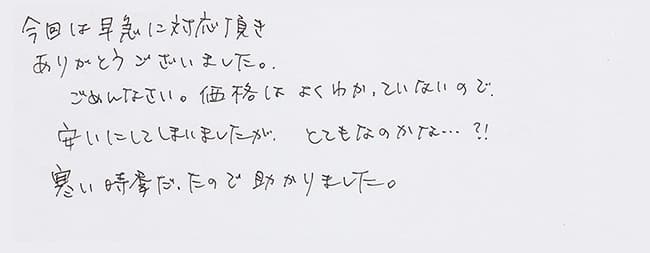 今回は早急に対応頂き
ありがとうございました。
ごめんなさい。価格はよくわかっていないので、
安いにしてしまいましたが、とてもなのかな…?!
寒い時季だったので助かりました。